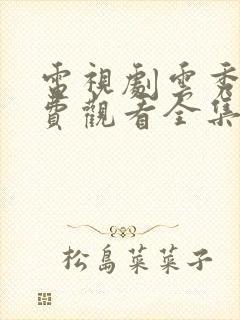 電視劇雲秀
費觀看全集
松島菜菜子